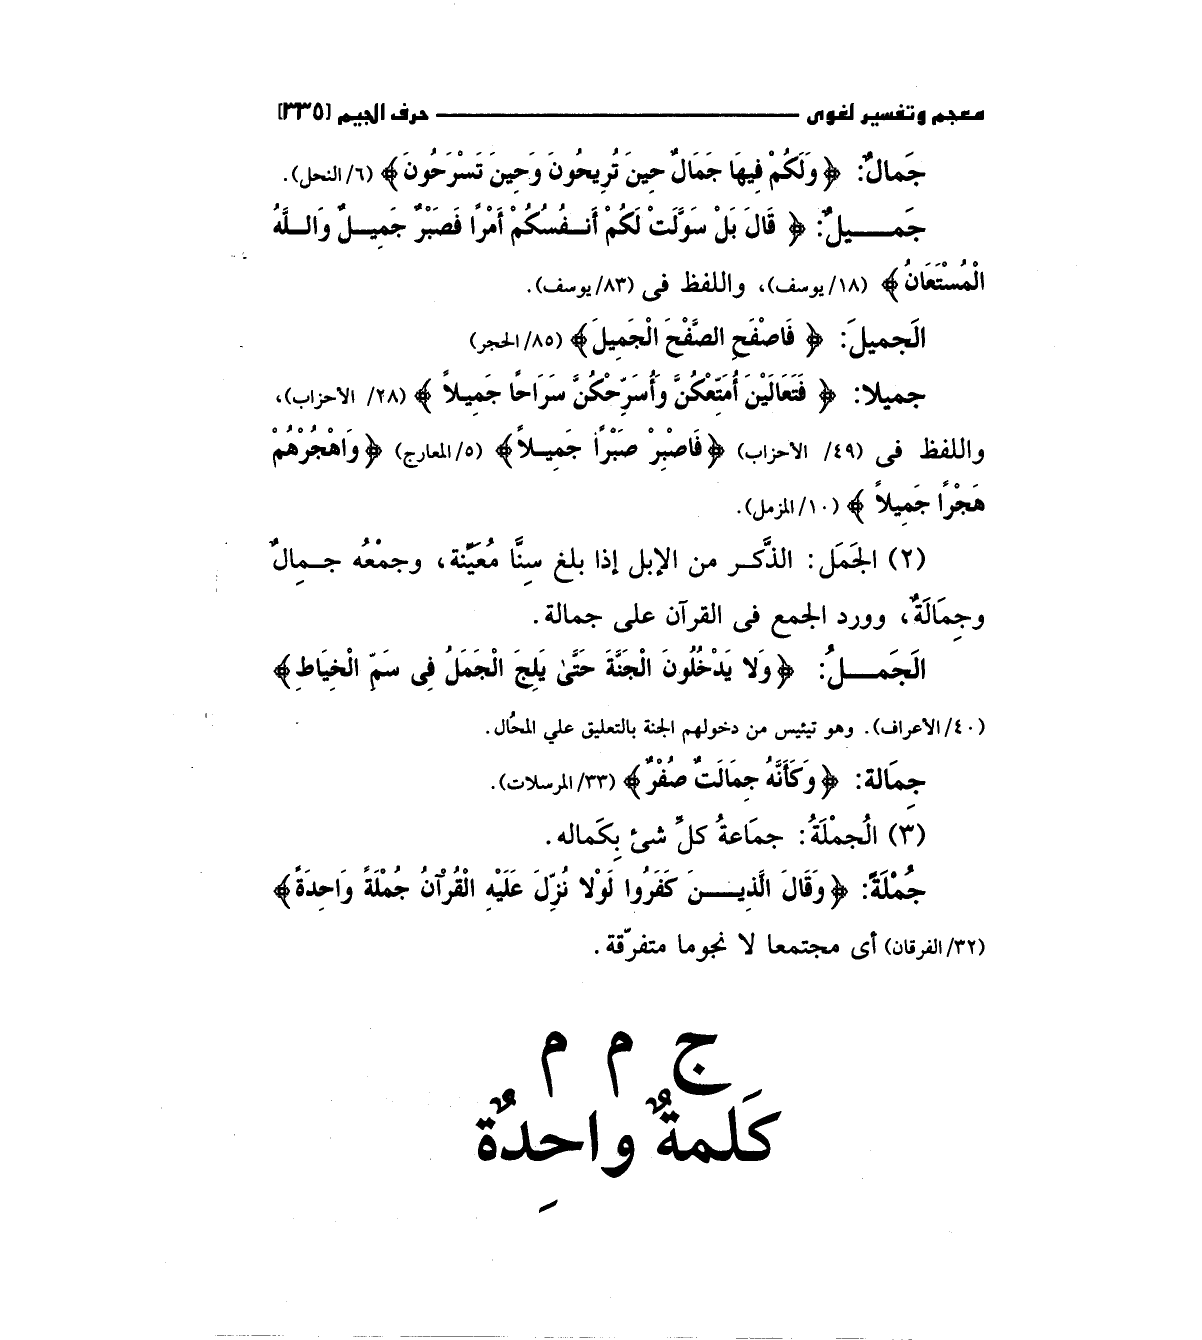 معجم وتفسير لغوى ــــــــــــــــــــــــ حرف الجيم [٣٣٥]
جَمالٌ: ﴿وَلَكُمْ فِيهَا جَمَالٌ حِينَ تُرِيحُونَ وَحِينَ تَسْرَحُونَ﴾ (٦/ النحل).
جَمـــيلٌ: ﴿ قَالَ بَلْ سَوَّلَتْ لَكُمْ أَنـفُسُكُمْ أَمْرًا فَصَبْرٌ جَمِيـلٌ وَالـلَّهُ
الْمُسْتَعَانُ﴾ (١٨/ يوسف)، واللفظ فى (٨٣/ يوسف).
الَجميلَ: ﴿ فَاصْفَحِ الصَّفْحَ الْجَمِيلَ﴾ (٨٥/ الحجر)
جميلا: ﴿ فَتَعَالَيْنَ أُمَتِّعْكُنَّ وَأُسَرِّحْكُنَّ سَرَاحًا جَمِيلاً ﴾ (٢٨/ الأحزاب)،
واللفظ فى (٤٩/ الأحزاب) ﴿فَاصْبِرْ صَبْرًا جَمِيـلاً﴾ (٥/ المعارج) ﴿وَاهْجُرْهُمْ
هَجْرًا جَمِيلاً ﴾ (١٠/ المزمل).
(٢) الجَمَل: الذَّكـر من الإبل إذا بلغ سِنًّا مُعَيَّنة، وجمْعُه جـمِالٌ
وجِمَالَةٌ، وورد الجمع فى القرآن على جمالة.
الَجَمـــلُ: ﴿وَلا يَدْخُلُونَ الْجَنَّةَ حَتَّىٰ يَلِجَ الْجَمَلُ فِى سَمِّ الْخِيَاطِ﴾
(٤٠/ الأعراف). وهو تيئيس من دخولهم الجنة بالتعليق علي المحُال.
جِمَالة: ﴿وَكَأَنَّهُ جِمَالَتٌ صُفْرٌ﴾ (٣٣/ المرسلات).
(٣) الُجمْلَةُ: جمَاعةُ كلِّ شئ بِكَماله.
جُمْلَةً: ﴿وَقَالَ الَّذِيـــنَ كَفَرُوا لَوْلا نُزِّلَ عَلَيْهِ الْقُرْآنُ جُمْلَةً وَاحِدَةً﴾
(٣٢/ الفرقان) أى مجتمعا لا نجوما متفرّقة.
ج م م
كَلمةٌ واحِدةٌ